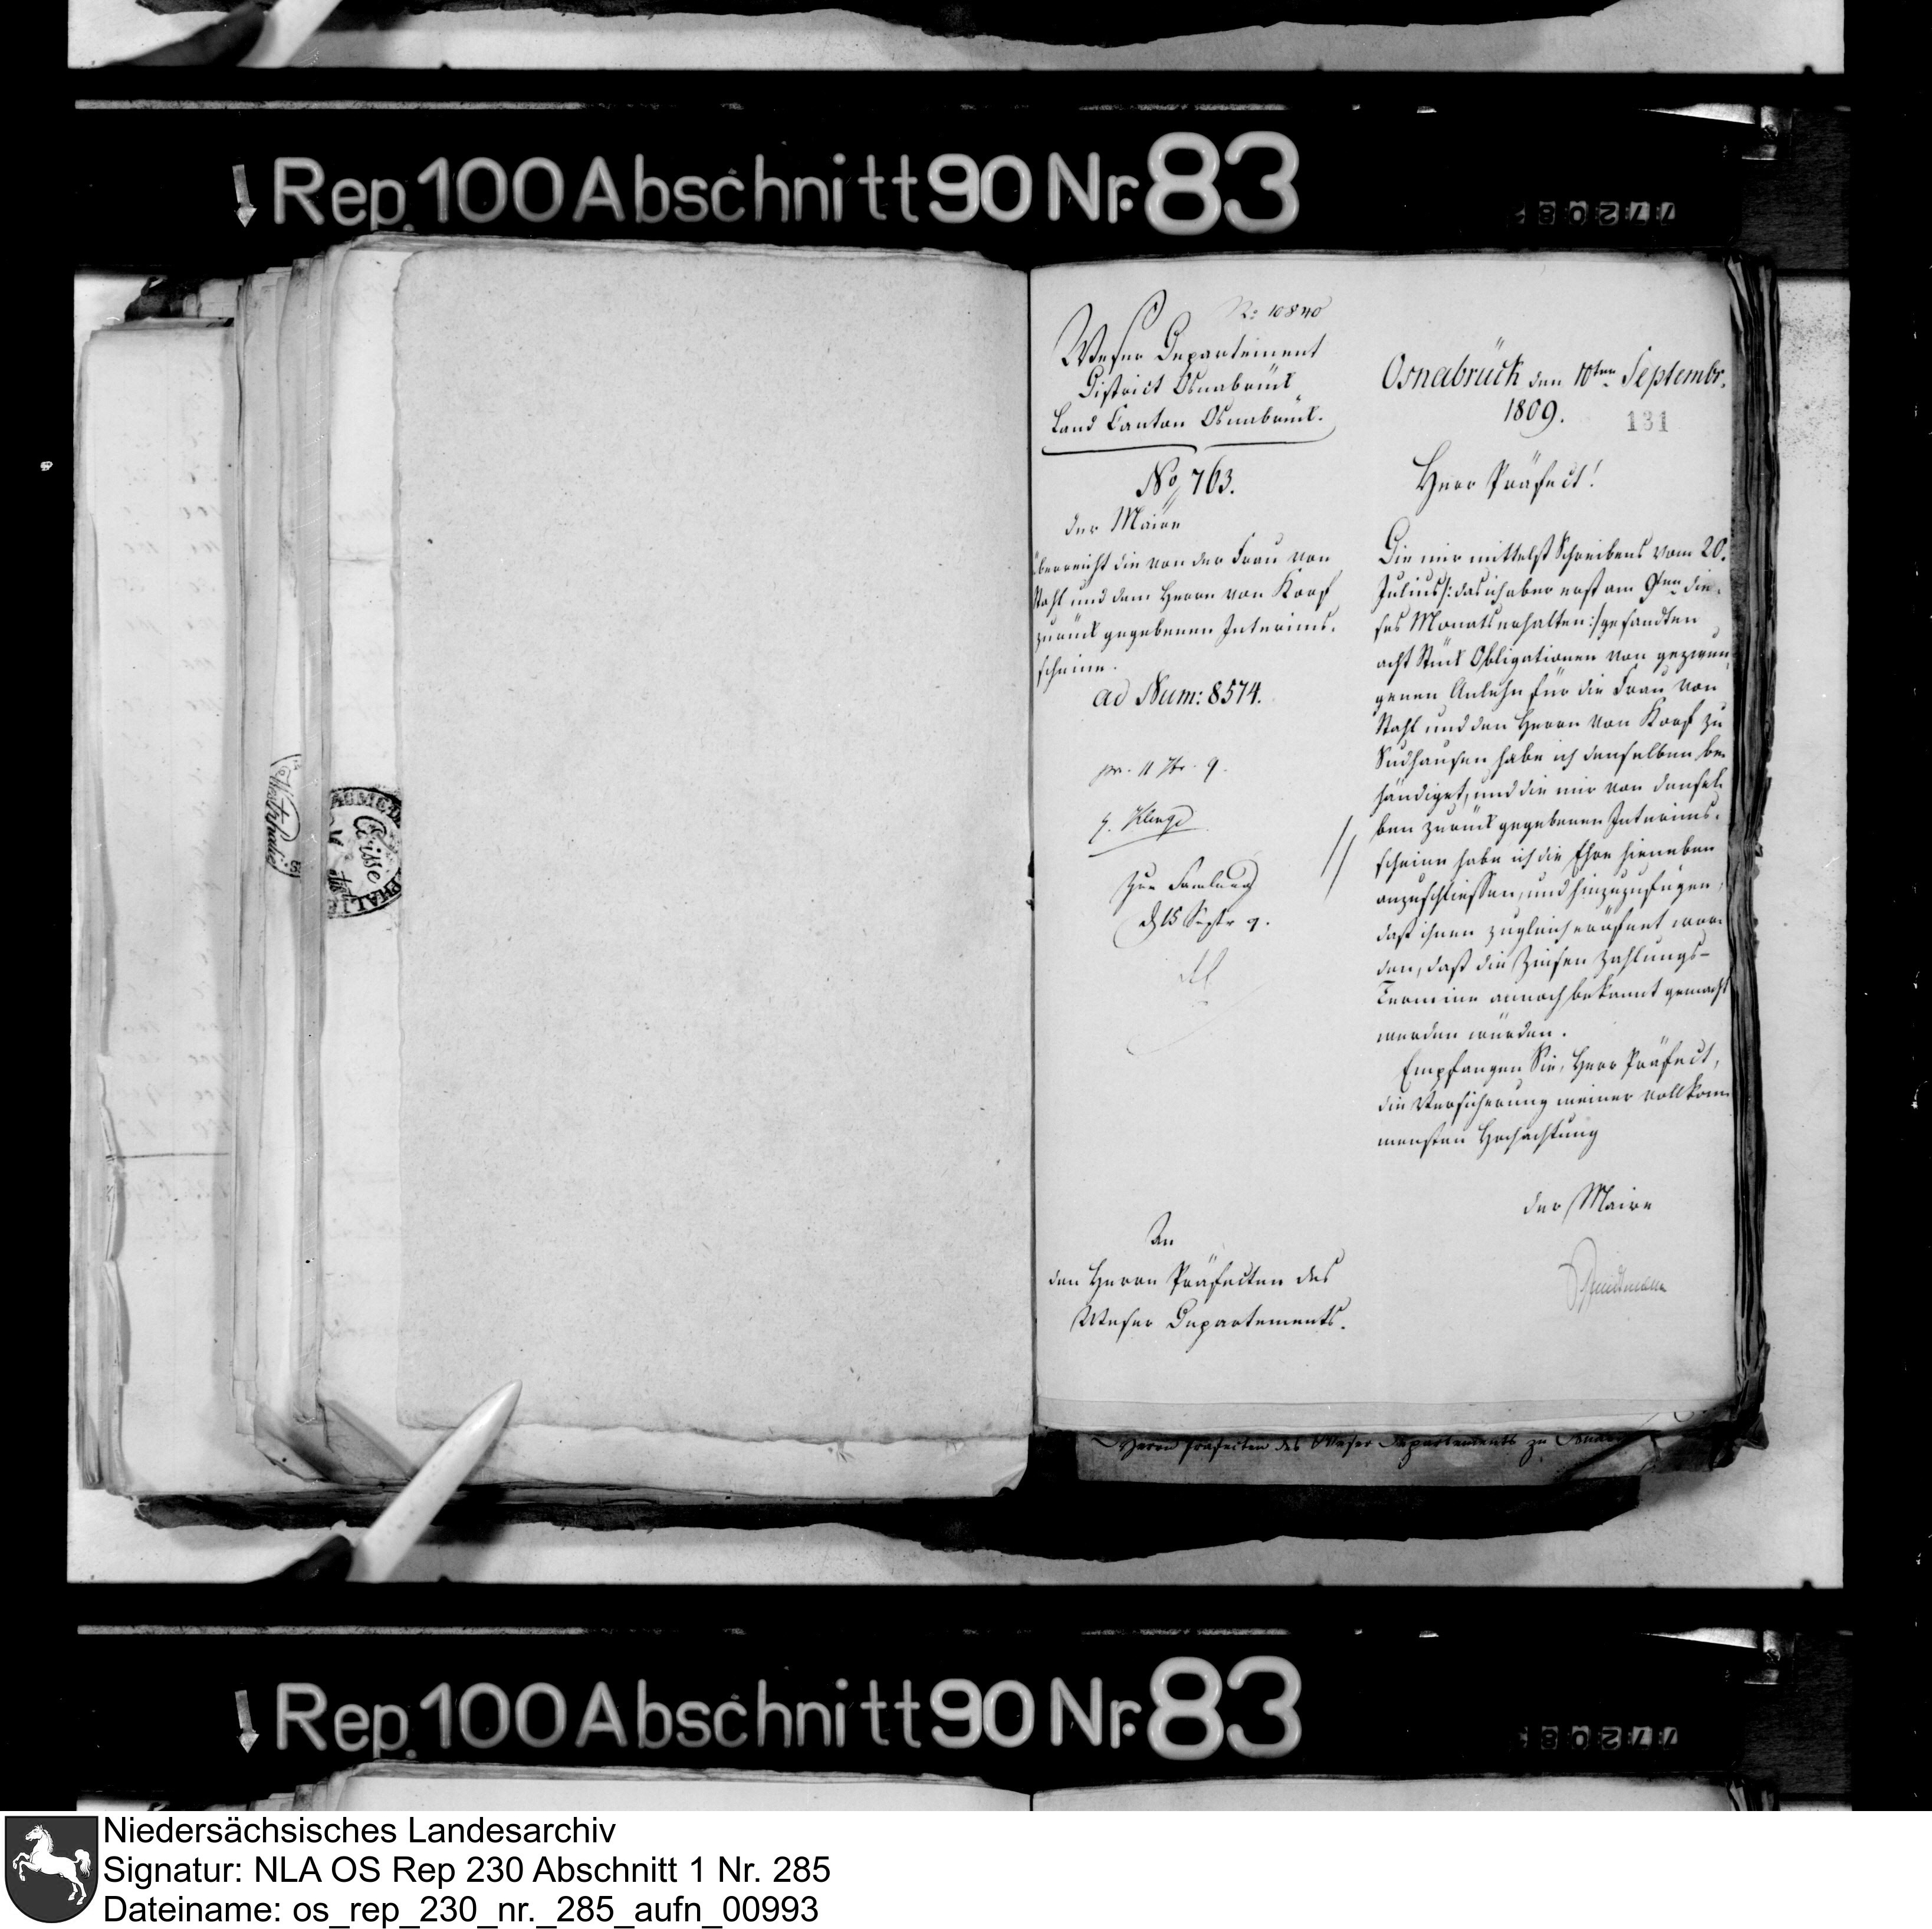 Rep. 100 Abschnitt 90 Nr. 83
No 10840
Weser Departement
District Osnabrück
Land Canton Osnabrück.
No 763.
der Maire
überreicht die von der Frau von
Stahl und dem Herrn von Korff
zurück gegebenen Interims-
scheine.
ad Num: 8574.
pr. 11 7br. 9.
Zur Samlung
d 15 Septr 9.
An
den Herrn Präfecten des
Weser Departements.
Osnabrück den 10ten Septembr.
1809.
131
Herr Präfect!
Die mir mittelst Schreibens vom 20.
Julius /: das ich aber erst am 9ten die-
ses Monats erhalten :/ gesandten
acht Stück Obligationen von gezwun-
genen Anlehn für die Frau von
Stahl und den Herrn von Korff zu
Sudhausen habe ich denselben be-
händiget, und die mir von densel-
ben zurück gegebenen Interims-
scheine habe ich die Ehre hieneben
anzuschliessen, und hinzuzufügen,
daß ihnen zugleich eröfnet wor-
den, daß die Zinsen Zahlungs-
Termine annoch bekannt gemacht
werden würden.
Empfangen Sie, Herr Präfect,
die Versicherung meiner vollkom-
mensten Hochachtung
der Maire
Herrn Präfecten des Weser Departements zu
Caisse
Rep. 100 Abschnitt 90 Nr. 83
Niedersächsisches Landesarchiv
Signatur: NLA OS Rep 230 Abschnitt 1 Nr. 285
Dateiname: os_rep_230_nr._285_aufn_00993